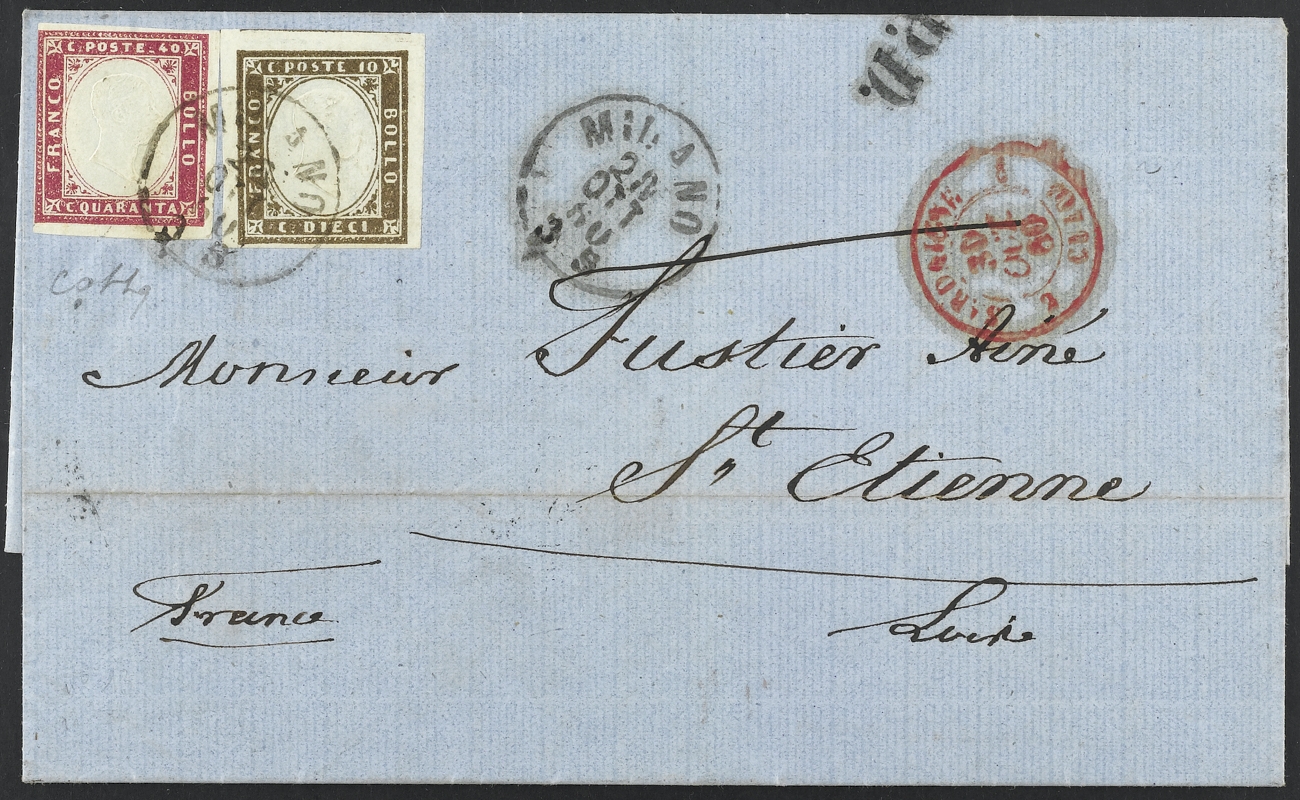 C. POSTE. 40
FRANCO
BOLLO
C. QUARANTA
C. POSTE 10
FRANCO
BOLLO
C. DIECI
MILANO
MILANO
P.D.
Monsieur Fustier Ainé
St Etienne
France
Loire